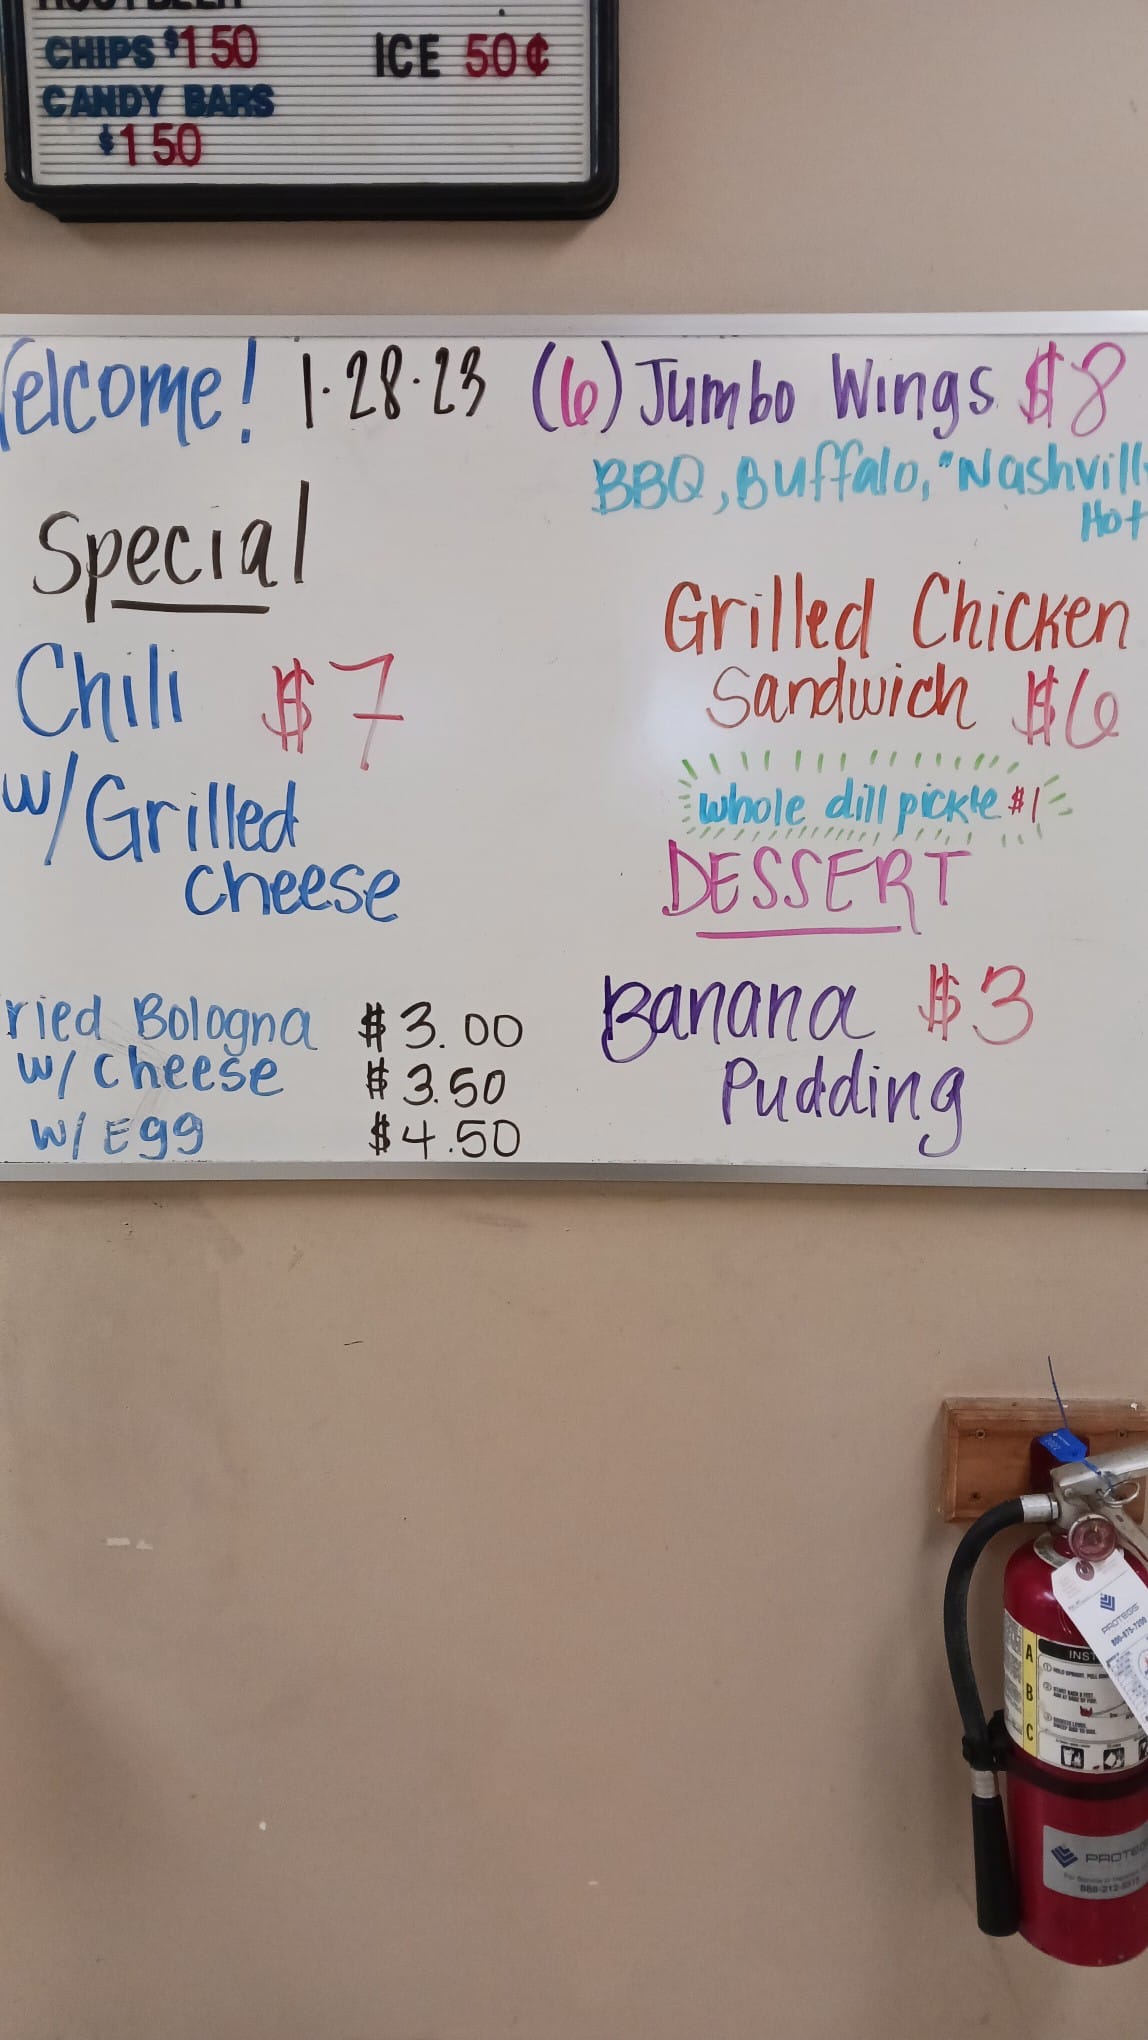 CHIPS $1 50
ICE 50¢
CANDY BARS
$1 50
Welcome! 1-28-23
Special
Chili $7
w/Grilled
cheese
ried Bologna $3.00
w/cheese $3.50
w/Egg $4.50
(6) Jumbo Wings $8
BBQ, Buffalo, "Nashvill
Hot
Grilled Chicken
Sandwich $6
whole dill pickle $1
DESSERT
Banana $3
Pudding
PROTEGIS
INST
A
B
C
PROTEGIS